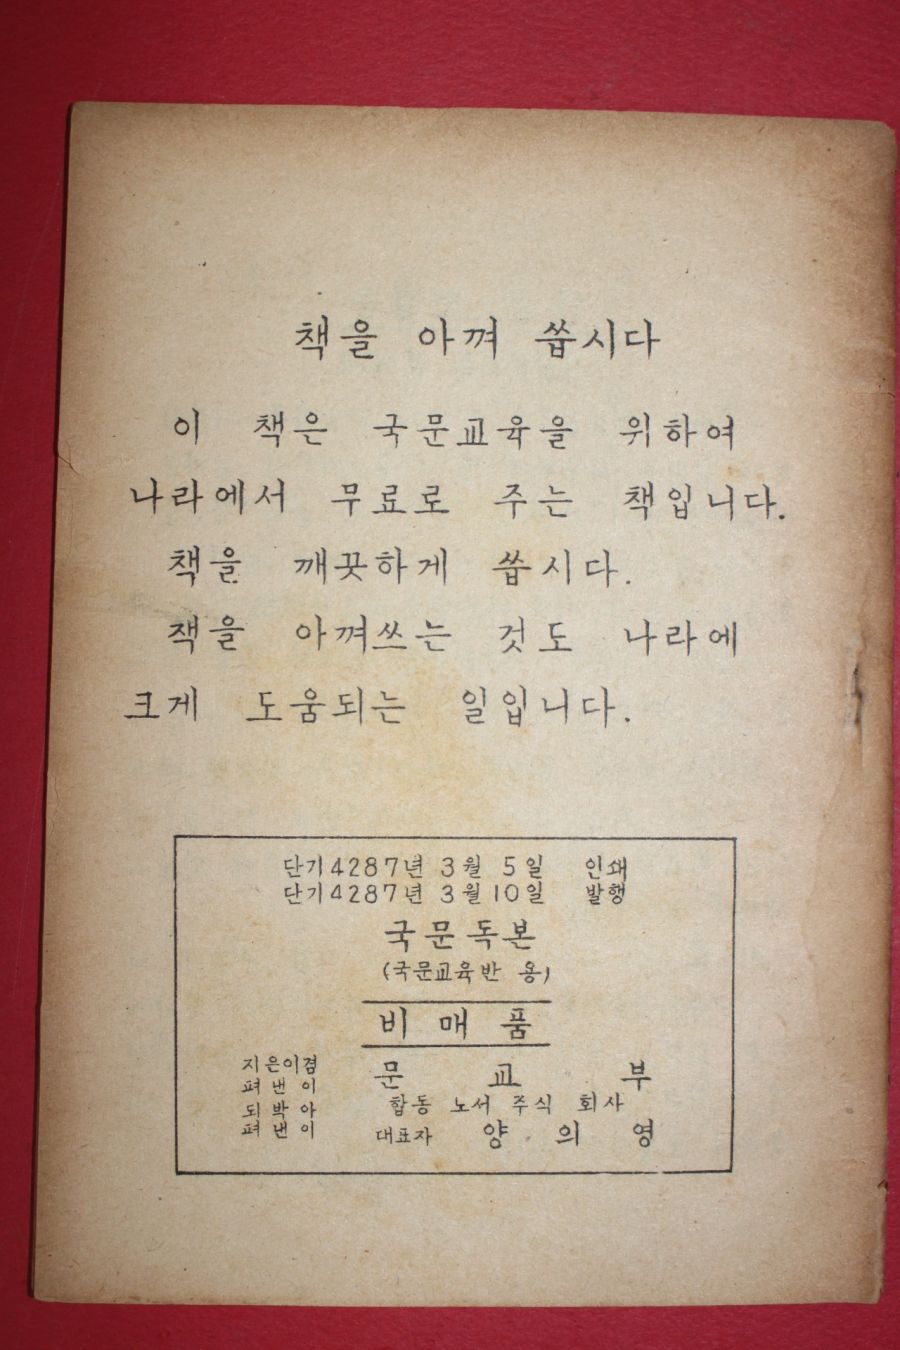 책을 아껴 씁시다
이 책은 국문교육을 위하여
나라에서 무료로 주는 책입니다.
책을 깨끗하게 씁시다.
책을 아껴쓰는 것도 나라에
크게 도움되는 일입니다.
단기4287년 3월 5일 인쇄
단기4287년 3월 10일 발행
국문독본
(국문교육반 용)
비매품
지은이겸
펴낸이 문교부
되박아 합동 노서 주식 회사
펴낸이 대표자 양의영